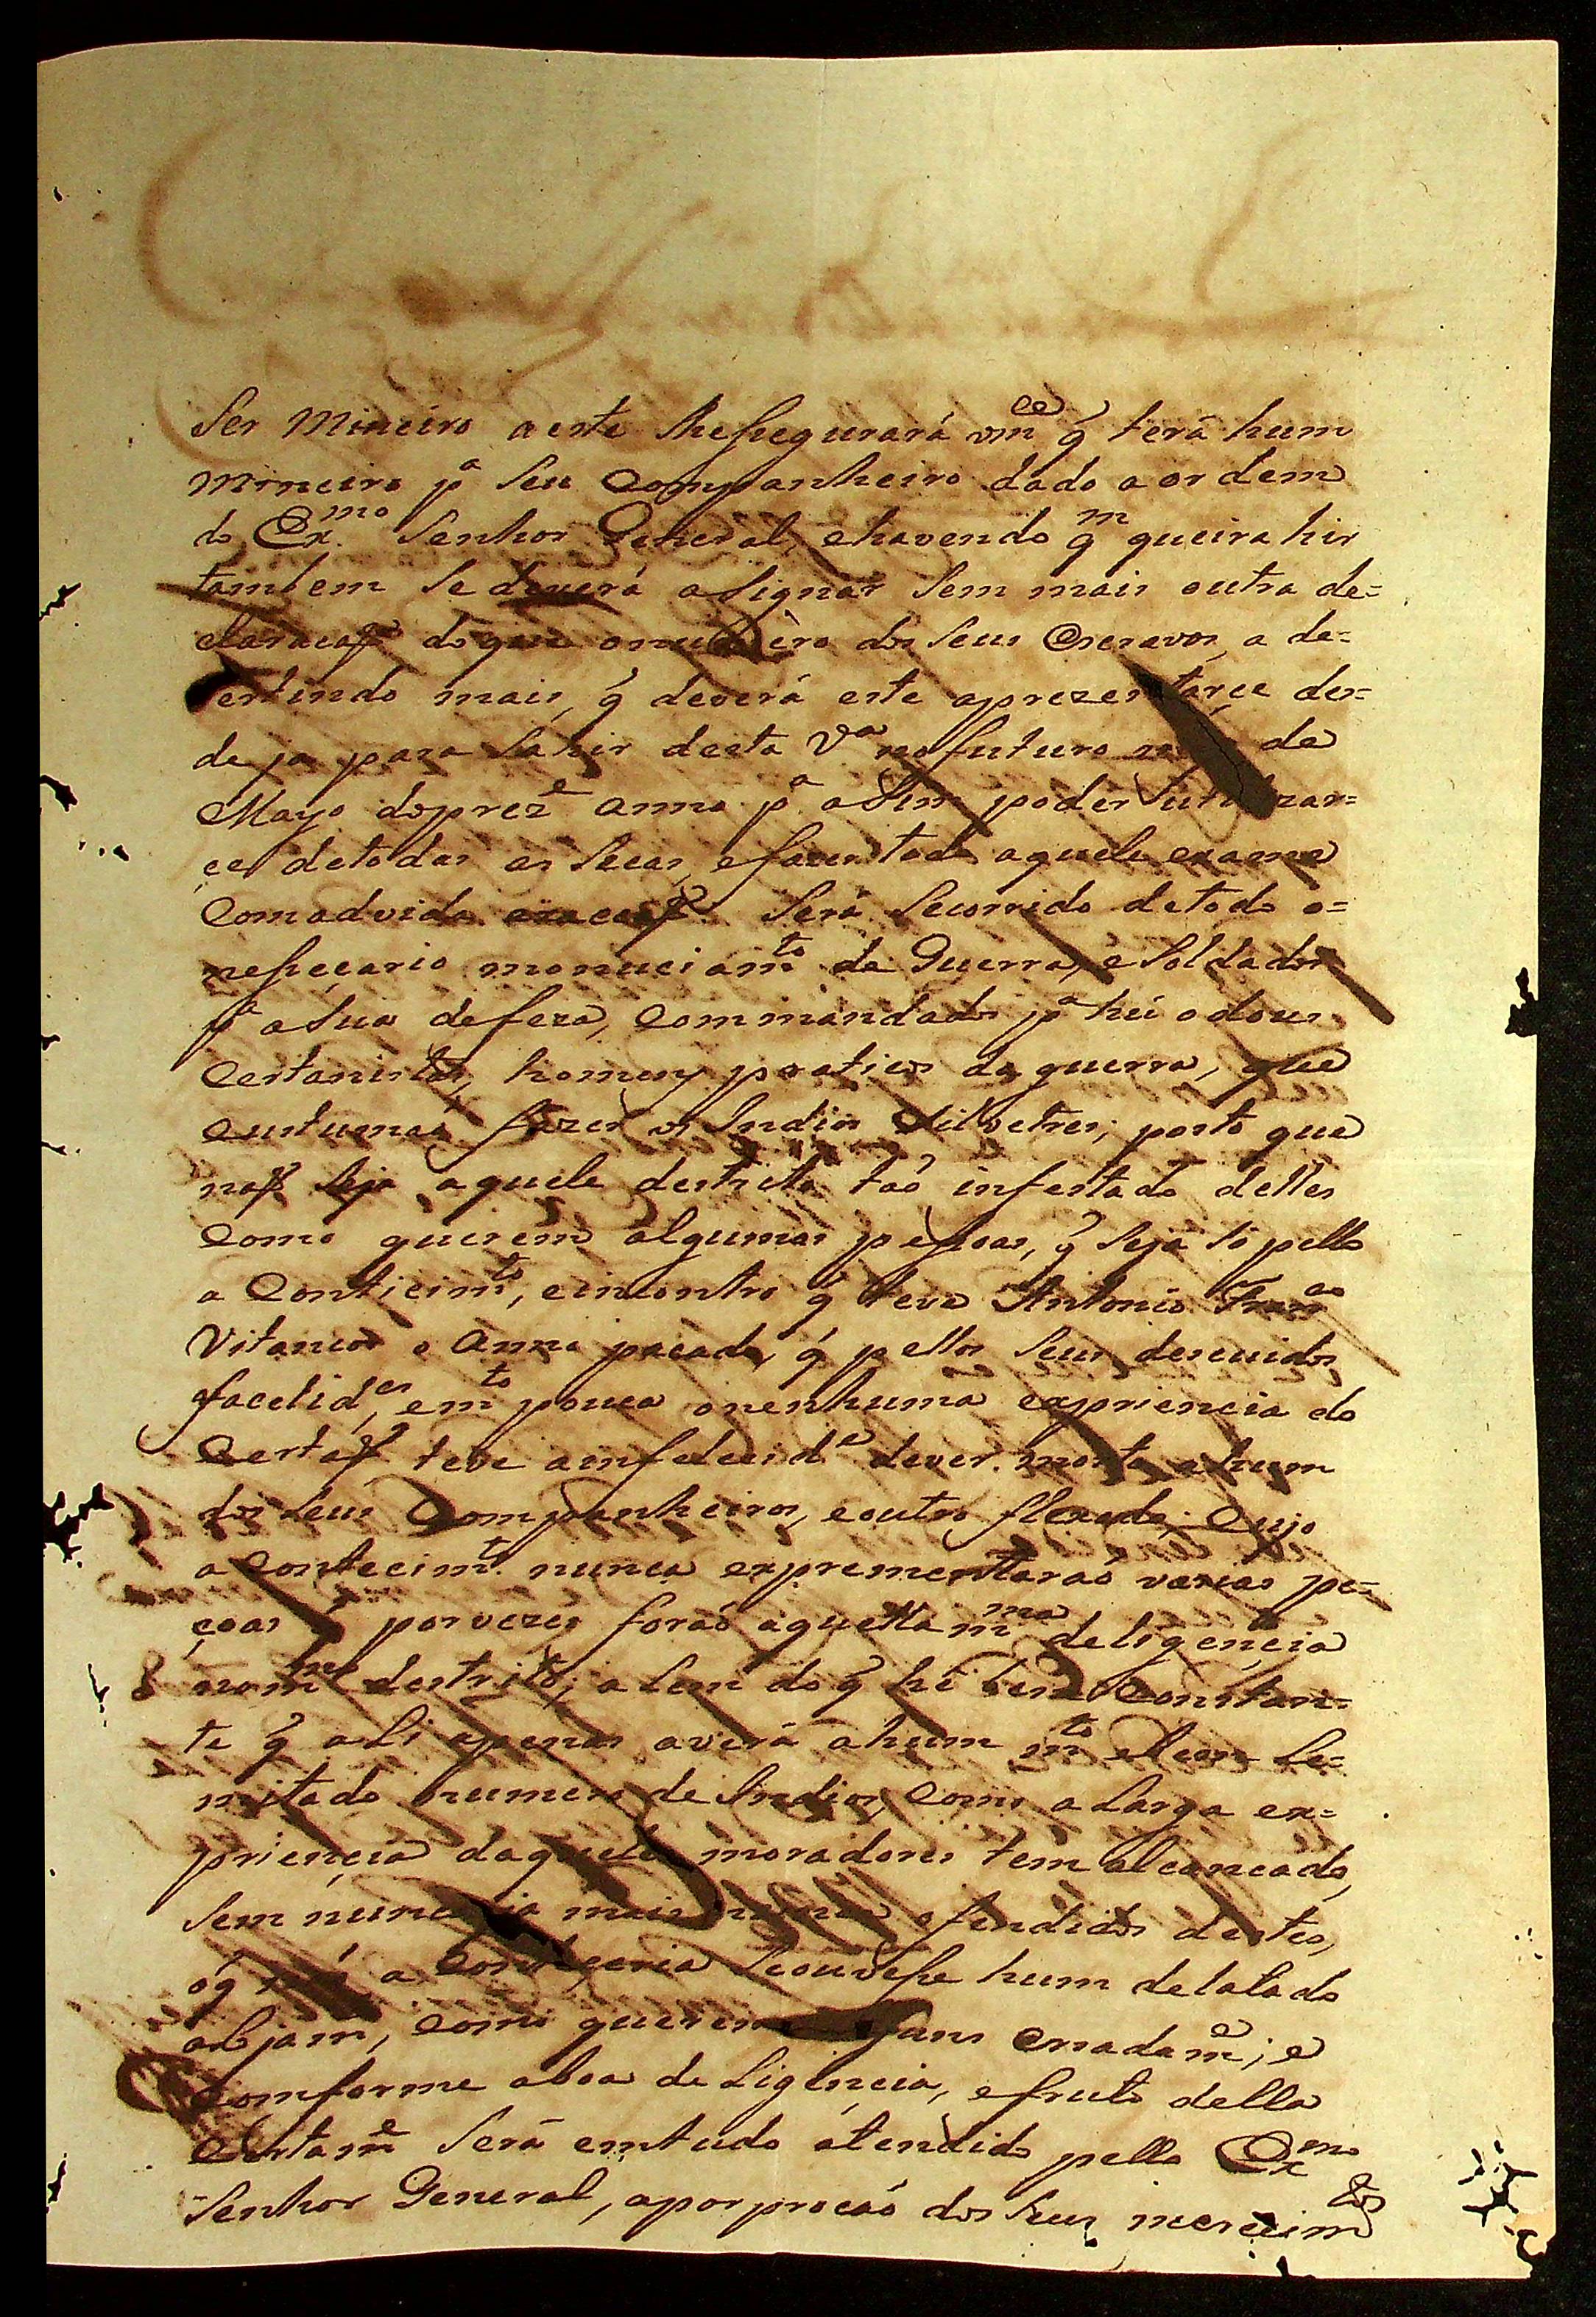 Ser Mineiro a este lhe segurará vm.ce q̃ terá hum
Mineiro p.a Seu Companheiro dado a ordem
do Ex.mo Senhor General, e havendo q.m queira hir
tambem Se deverá asignar Sem mais outra de=
claracaõ do que o numero dos Seus Escravos, a de=
vertindo mais, q̃ deverá este aprezentarçe des=
de ja para Sahir desta V.a no futuro de
Mayo do prez.e anno p.a asim poder utilizar=
çe de todas as Secas, e fazer todo aquele exame
Com a divida exacaõ. Será Secorrido de todo o=
neseçario monuciam.to de Guerra, e Soldados
p.a a Sua defeza, Commandados p.a hú o dous
Certanistas, homens praticos da guerra, que
custumaõ fazer os Indios Silvetres; posto que
naõ Seja aquele destrito taõ infestado delles
Como querem algumas pesoas, q̃ Seja só pello
a Contiçim.to, e incontro q̃ teve Antonio Fran.co
Vitancor o Anno paçado, q̃ pellos Seus descuidos
facelid.es, e m.to pouca o nenhuma expriencia do
Certaõ teve a infelecid.e de ver morto a hum
dos Seus Companheiros, e outro flexado. Cujo
a Contecim.to nunca exprementaraõ varias pe=
çoas q̃ por vezes foraõ aquella m.ma deligençia
no m.mo destrito; alem do q̃ hé bem Constan=
te q̃ ali apenas averá a hum m.to e bem Le=
mitado numero de Indios, Como a Larga ex=
priençia daqueles moradores tem alcancado,
Sem nunca ja mais ofendidos destes,
óq̃ naõ a Contiçeria Se ouvese hum delatado
, Como querem alguns erradam.e; e
Comforme a boa deLigençia, e fruto della
Certam.e Será em tudo atendido pello Ex.mo
Senhor General, a porprocaõ dos Seus mereçim.tos